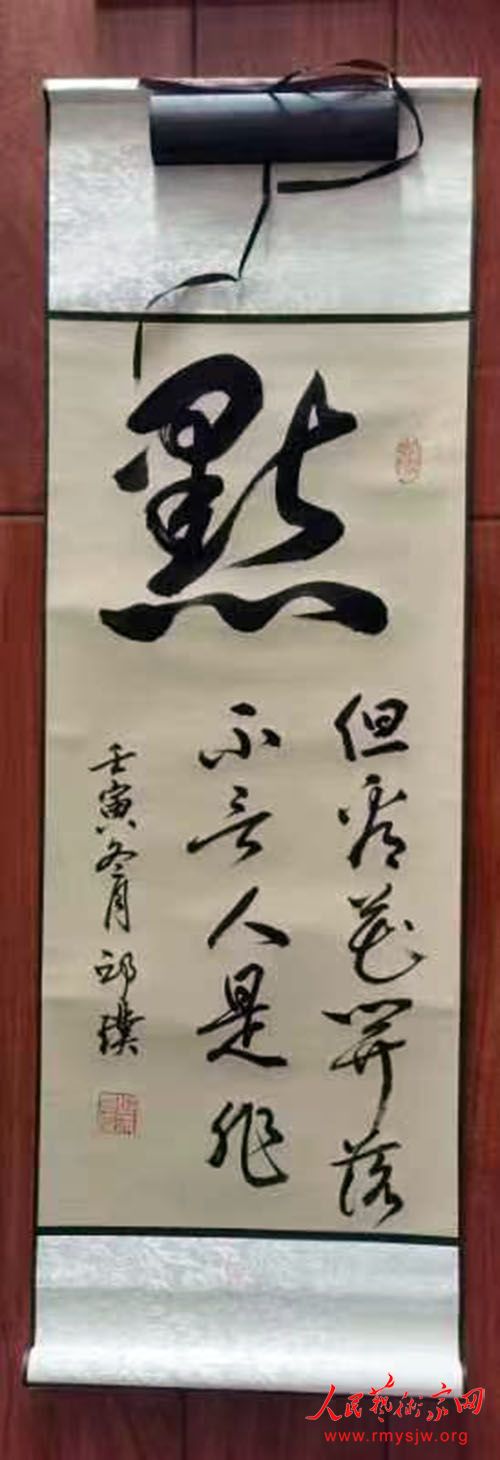 默
但看花開落
不言人是非
壬寅冬月 邱
人民藝術家网
www.rmysjw.org